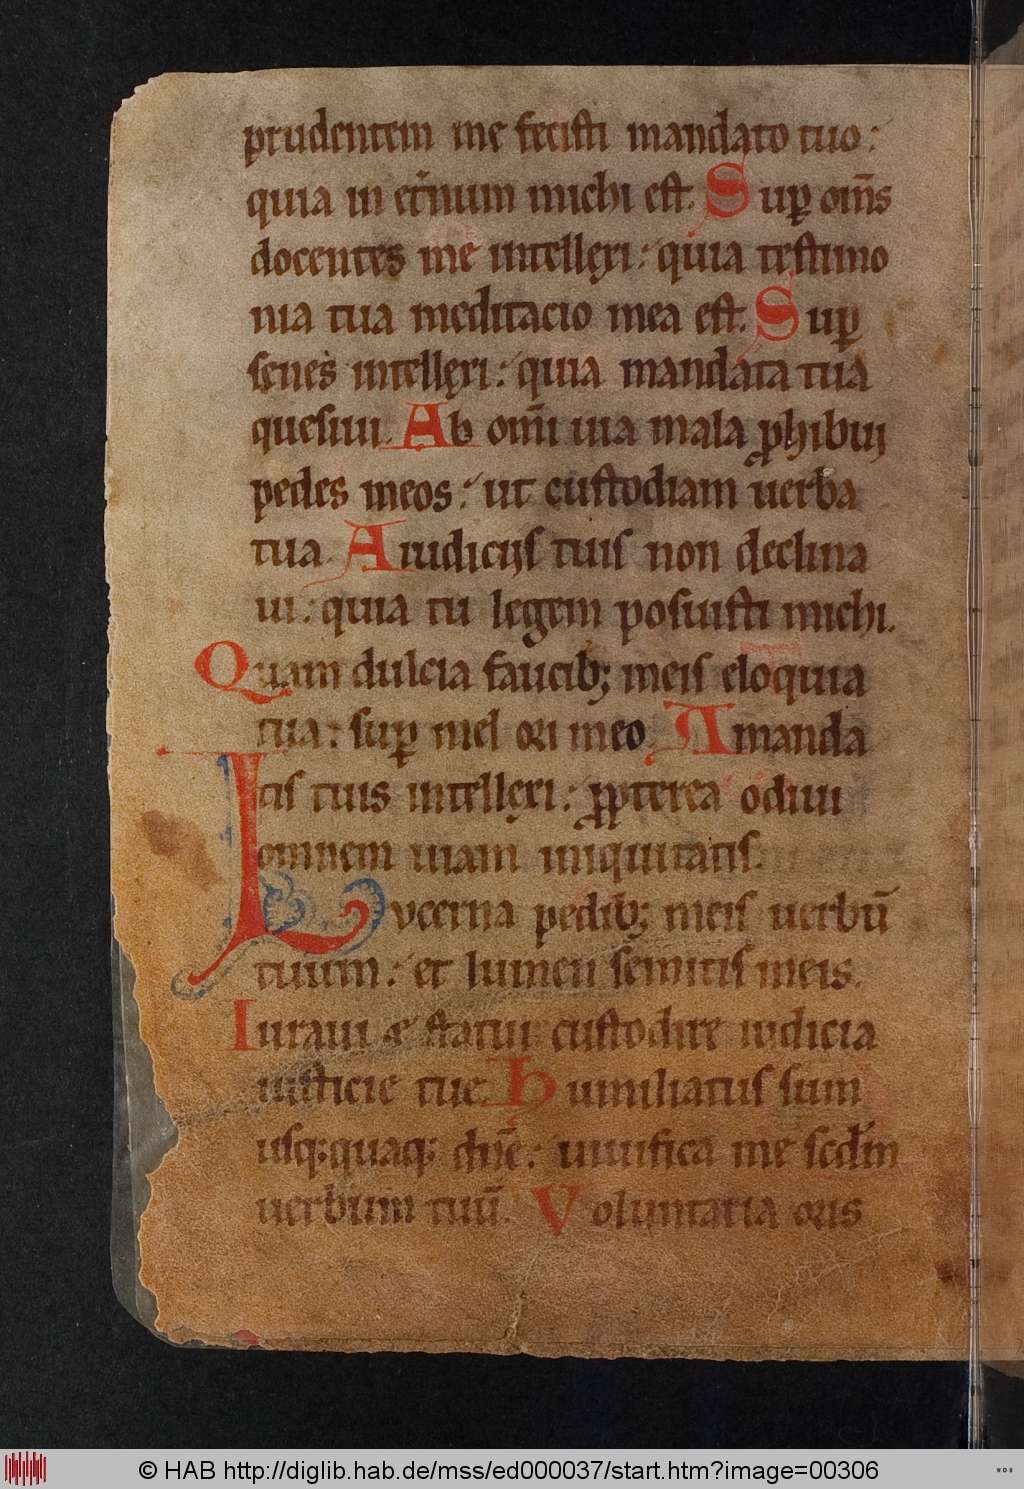 prudentem me fecisti mandato tuo :
quia in et̄num michi est. Sup̱ om̄s
docentes me intellęxi : quia testimo
nia tua meditacio mea est. Sup̱
senes intellęxi : quia mandata tua
quesiui. Ab om̄i uia mala ꝓhibuj
pedes meos : ut custodiam uerba
tua. A iudicijs tuis non declina
ui : quia tu legem posuisti michi.
Quam dulcia faucibꝫ meis eloquia
tua : sup̱ mel ori meo. A manda
tis tuis intellęxi : ꝓpterea odiui
omnem uiam iniquitatis.
Lvcerna pedibꝫ meis uerbū
tuum : et lumen semitis meis.
Iuraui & statui custodire iudicia
iusticie tue. Humiliatus sum
usqꝫquaqꝫ dn̄e : uiuifica me scd̄m
uerbum tuū. Voluntaria oris
© HAB http://diglib.hab.de/mss/ed000037/start.htm?image=00306